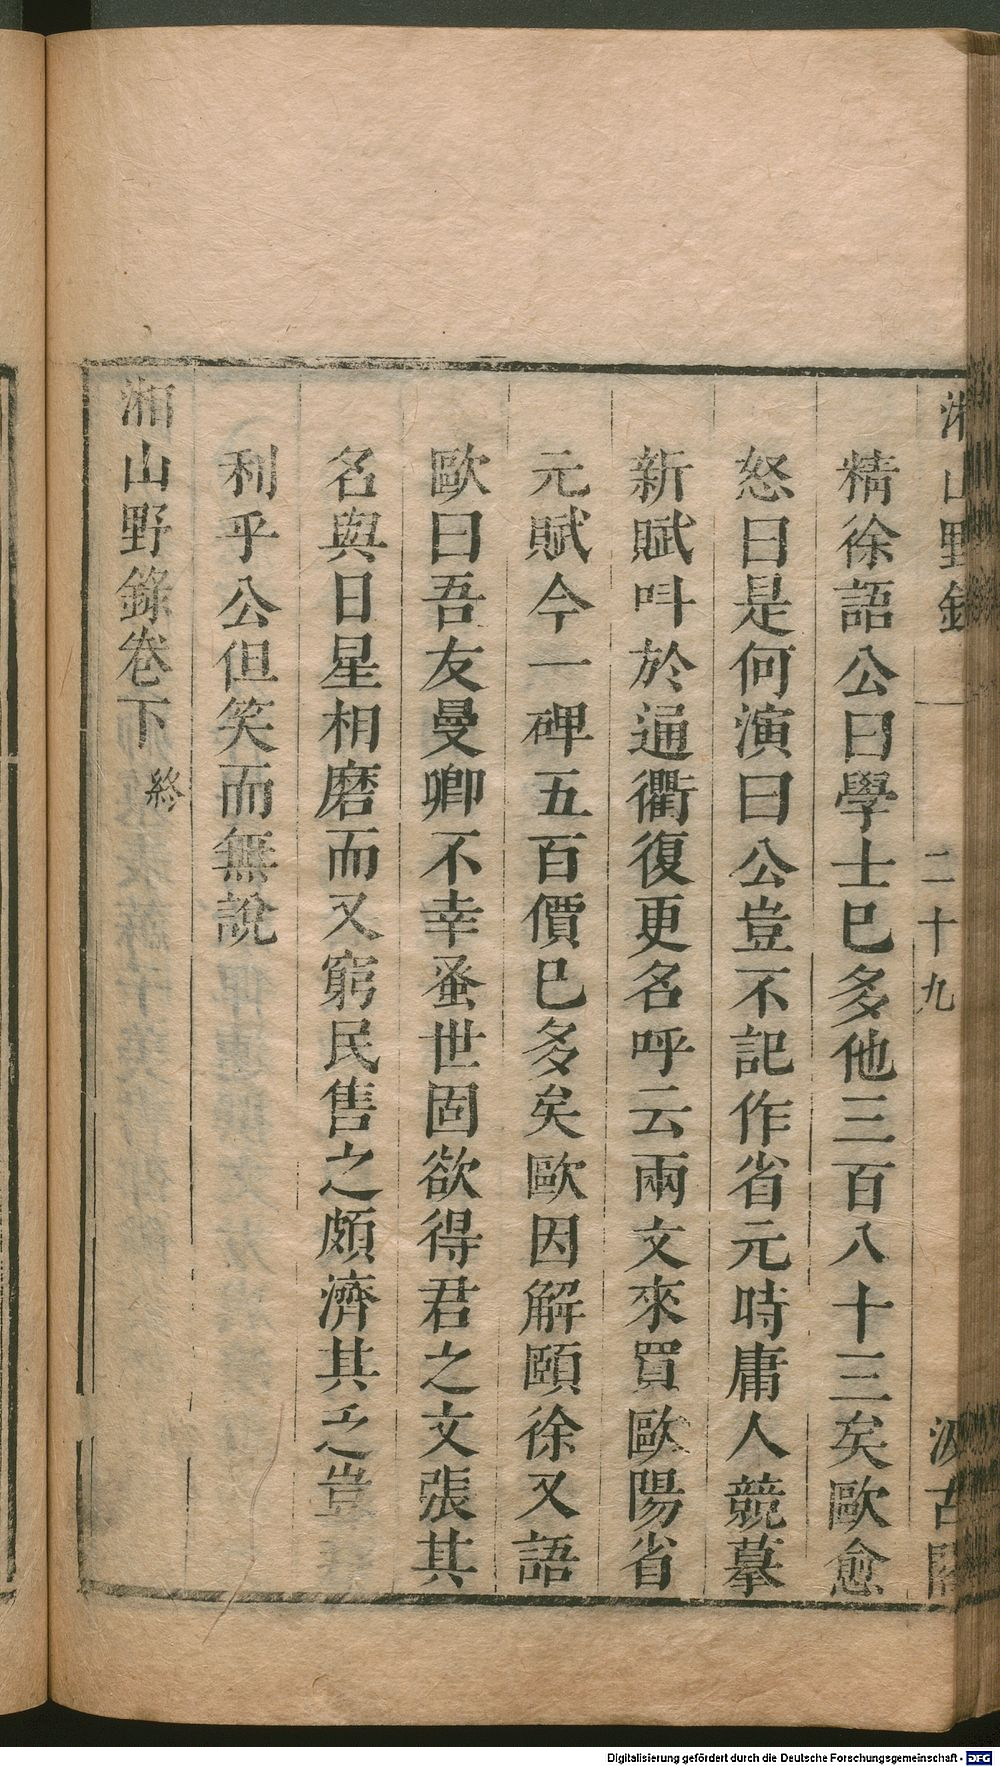 湘山野錄
二十九
汲古閣
精徐語公曰學士巳多他三百八十三矣歐愈
怒曰是何演曰公豈不記作省元時庸人競摹
新賦呌於通衢復更名呼云兩文來買歐陽省
元賦今一碑五百價巳多矣歐因解頤徐又語
歐曰吾友曼卿不幸蚤世固欲得君之文張其
名與日星相磨而又窮民售之頗濟其乏豈
利乎公但笑而無說
湘山野錄卷下 終
Digitalisierung gefördert durch die Deutsche Forschungsgemeinschaft - DFG